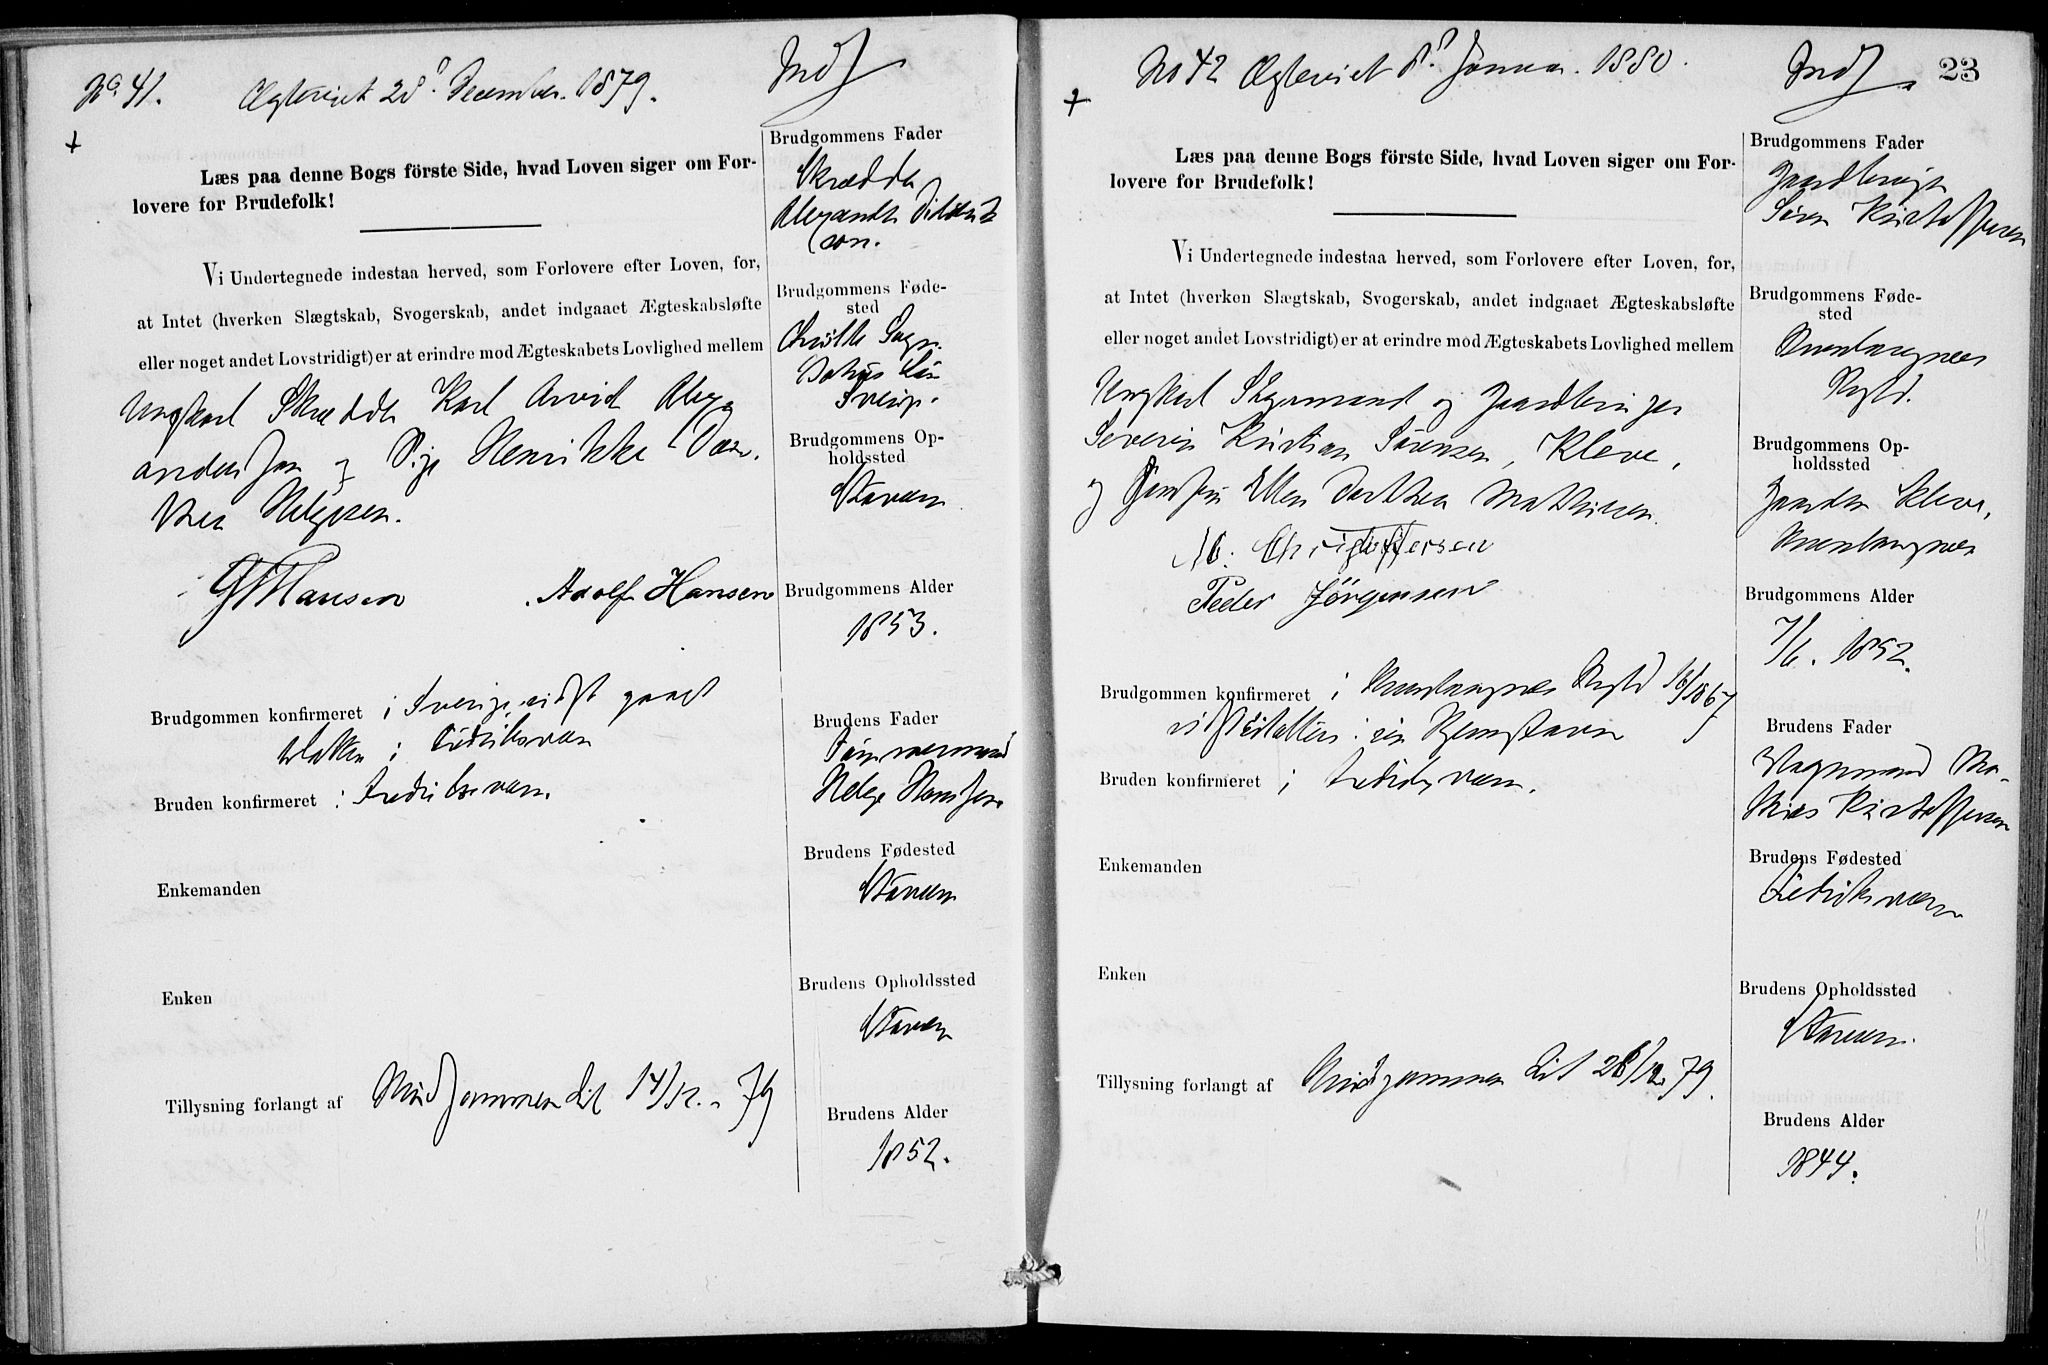 No. 41. Ægteviet 28de December. 1879. Ind
Læs paa denne Bogs förste Side, hvad Loven siger om For-
lovere for Brudefolk!
Vi Undertegnede indestaa herved, som Forlovere efter Loven, for,
at Intet (hverken Slægtskab, Svogerskab, andet indgaaet Ægteskabsløfte
eller noget andet Lovstridigt) er at erindre mod Ægteskabets Lovlighed mellem
Ungkarl Skrædder Karl Arvid Alex-
andersen og Pige Henrikke
Helgesen.
Hansen Adolf Hansen
Brudgommen konfirmeret i Sverige, gaaet
i Fredriksværn
Bruden konfirmeret i Fredriksværn.
Enkemanden
Enken
Tillysning forlangt af Brudgommen til 14/12. 79
Brudgommens Fader
Skrædder
Alexander
son.
Brudgommens Føde-
sted
Sogn.
Sverig.
Brudgommens Op-
holdssted
Stavern
Brudgommens Alder
1853.
Brudens Fader
Tømmermand
Helge Hansen
Brudens Fødested
Stavern
Brudens Opholdssted
Stavern
Brudens Alder
1852.
No 42 Ægteviet 8de Januar. 1880. Ind 23
Læs paa denne Bogs förste Side, hvad Loven siger om For-
lovere for Brudefolk!
Vi Undertegnede indestaa herved, som Forlovere efter Loven, for,
at Intet (hverken Slægtskab, Svogerskab, andet indgaaet Ægteskabsløfte
eller noget andet Lovstridigt) er at erindre mod Ægteskabets Lovlighed mellem
Ungkarl Styrmand og Gaardbruger
Severin Kristian Sørensen, Kleve,
og Ellen Dorthea Mathisen.
M. Christoffersen
Peder Jörgensen
Brudgommen konfirmeret i Brunlangnæs Prgld 1867
Bruden konfirmeret i Fredriksværn.
Enkemanden
Enken
Tillysning forlangt af Brudgommen til 28/12 79.
Brudgommens Fader
Gaardbruger
Søren Kristoffersen
Brudgommens Føde-
sted
Brunlangnæs
Prgld.
Brudgommens Op-
holdssted
Gaarden Kleve,
Brunlangnæs
Brudgommens Alder
7/6. 1852.
Brudens Fader
Vognmand Ma-
thias Kristoffersen
Brudens Fødested
Fredriksværn
Brudens Opholdssted
Stavern.
Brudens Alder
1844.